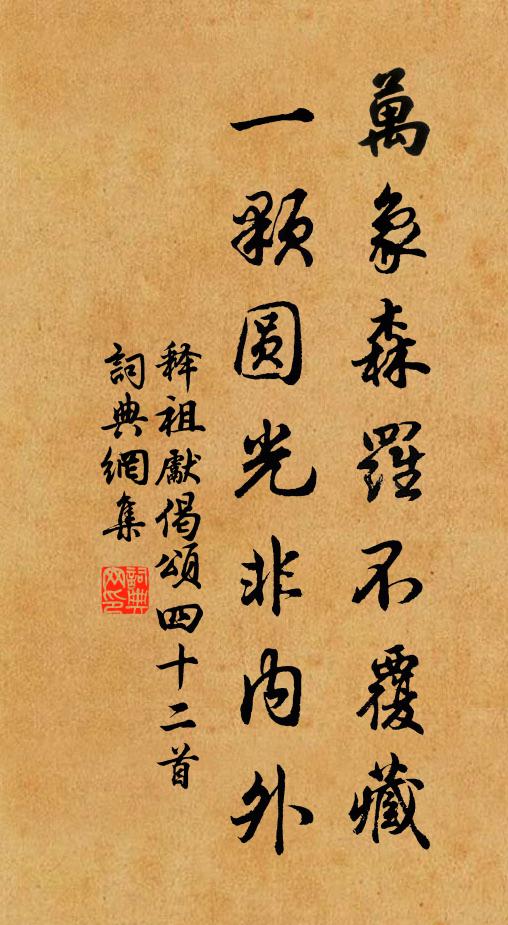 萬象森羅不覆藏
一顆圓光非內外
释祖獻偈頌四十二首
詞典網集
詞典网印